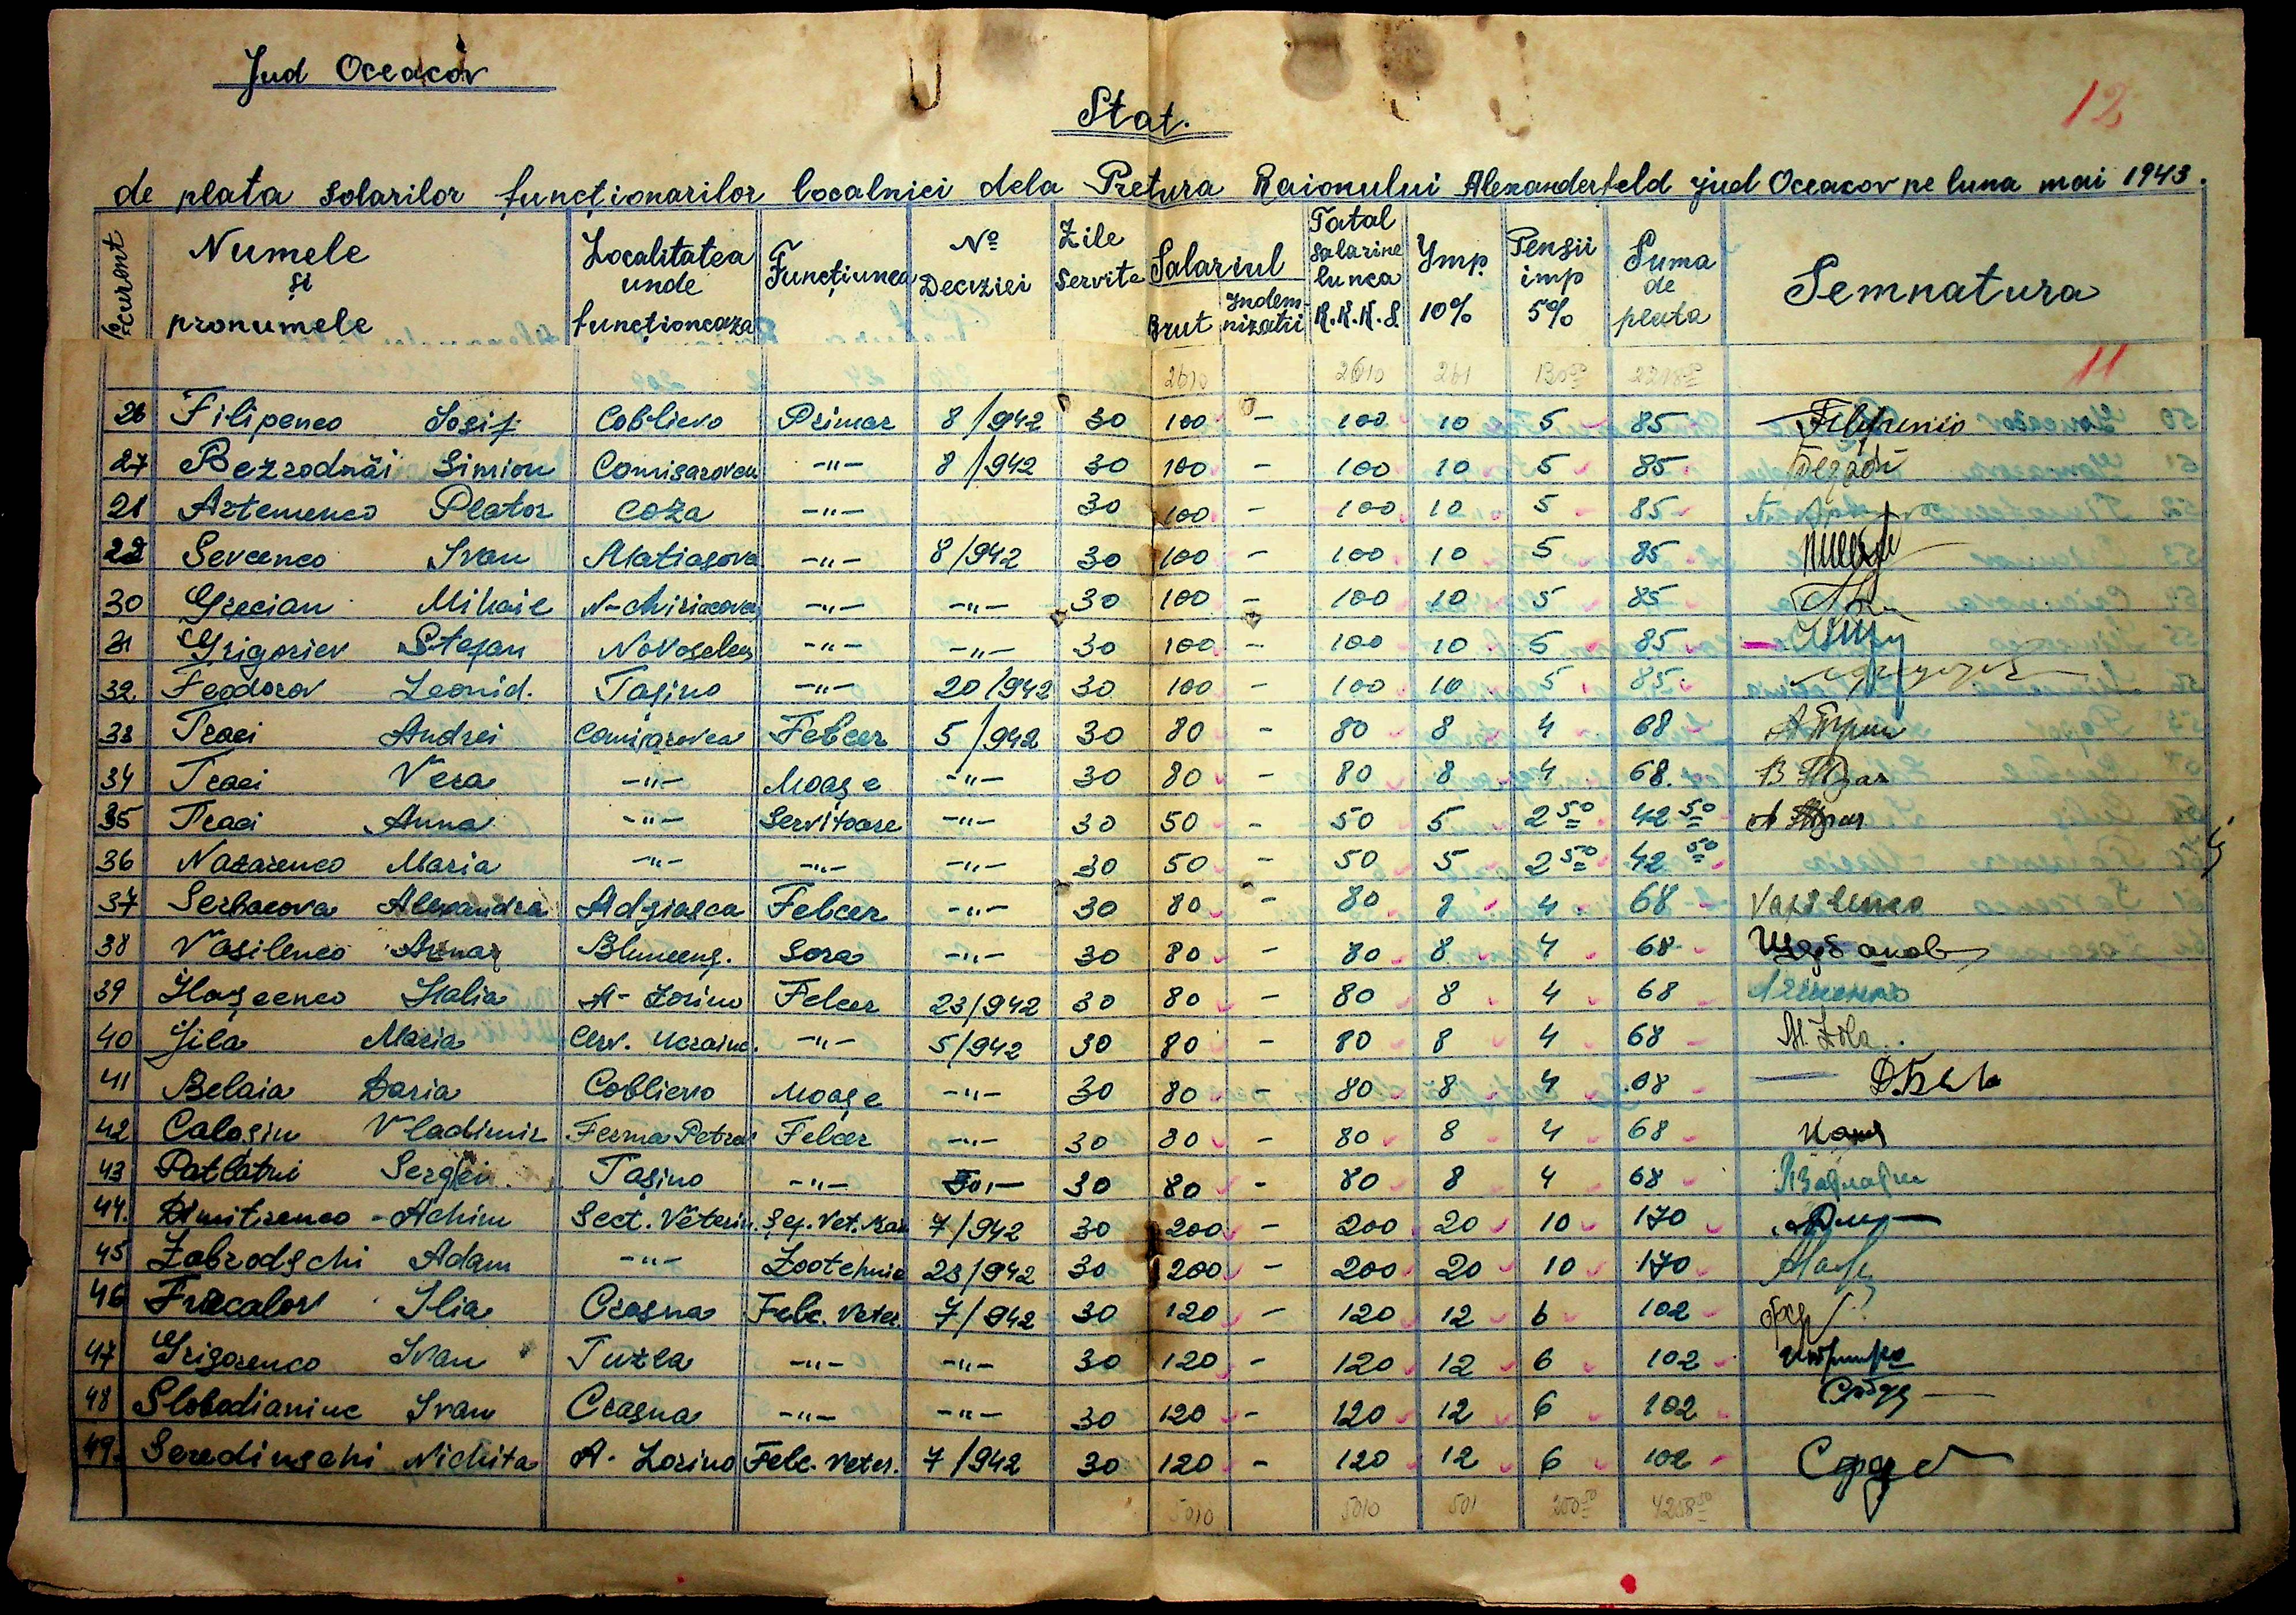 Jud Oceacov
12
Stat.
de plata solarilor funcţionarilor localnici dela Pretura Raionului Alexanderfeld jud Oceacov pe luna mai 1943.
No curent Numele şi pronumele Localitatea unde funcţioneaza Funcţiunea No Deciziei Zile Servite Salariul Brut Indemnizatii Tatal salarine lunca R.K.K.S. Imp. 10% Pensii imp 5% Suma de plata Semnatura
2610 2610 261 130 50 2218 50 11
26 Filipenco Iosif Coblievo Primar 8/942 30 100 - 100 10 5 85
27 Bezrodnăi Simion Comisarovca -"- 8/942 30 100 - 100 10 5 85
28 Artemenco Plator Coza -"- 30 100 - 100 10 5 85
29 Sevcenco Ivan Matiasova -"- 8/942 30 100 - 100 10 5 85
30 Grecian Mihail N-chiriacovca -"- -"- 30 100 - 100 10 5 85
31 Grigoriev Stefan Novoseleu -"- -"- 30 100 - 100 10 5 85
32. Feodorov Leonid. Taşino -"- 20/942 30 100 - 100 10 5 85
33 Traci Andrei Comisarovca Felcer 5/942 30 80 - 80 8 4 68
34 Traci Vera -"- Moaşe -"- 30 80 - 80 8 4 68.
35 Traci Anna -"- Servitoare -"- 30 50 - 50 5 2 50 42 50
36 Nazarenco Maria -"- -"- -"- 30 50 - 50 5 2 50 42 50
37 Serbacova Alexandra Adgiasca Felcer -"- 30 80 - 80 8 4 68
38 Vasilenco Sora -"- 30 80 - 80 8 4 68
39 Ilaşcenco Italia A-Zorino Felcer 23/942 30 80 - 80 8 4 68
40 Jila Maria Cerv. Ucraine. -"- 5/942 30 80 - 80 8 4 68 M. Zola
41 Belaia Daria Coblievo Moaşe -"- 30 80 - 80 8 4 68
42 Calosin Vladimir Ferma Petra Felcer -"- 30 80 - 80 8 4 68
43 Patlatni Serghei Taşino -"- 30 80 - 80 8 4 68
44. Dimitrenco Achim Sect. Veterin. Şef. Vet. 7/942 30 200 - 200 20 10 170
45 Zabrodschi Adam -"- Zootehnic 23/942 30 200 - 200 20 10 170
46 Fricalov Ilia Crasna Felc. Veter. 7/942 30 120 - 120 12 6 102
47 Grigorenco Ivan Tuzla -"- -"- 30 120 - 120 12 6 102
48 Slobodianiuc Ivan Crasna -"- -"- 30 120 - 120 12 6 102
49. Seredinschi Nichita A. Zorino Felc. Veter. 7/942 30 120 - 120 12 6 102
5010 5010 501 250 50 4258 50